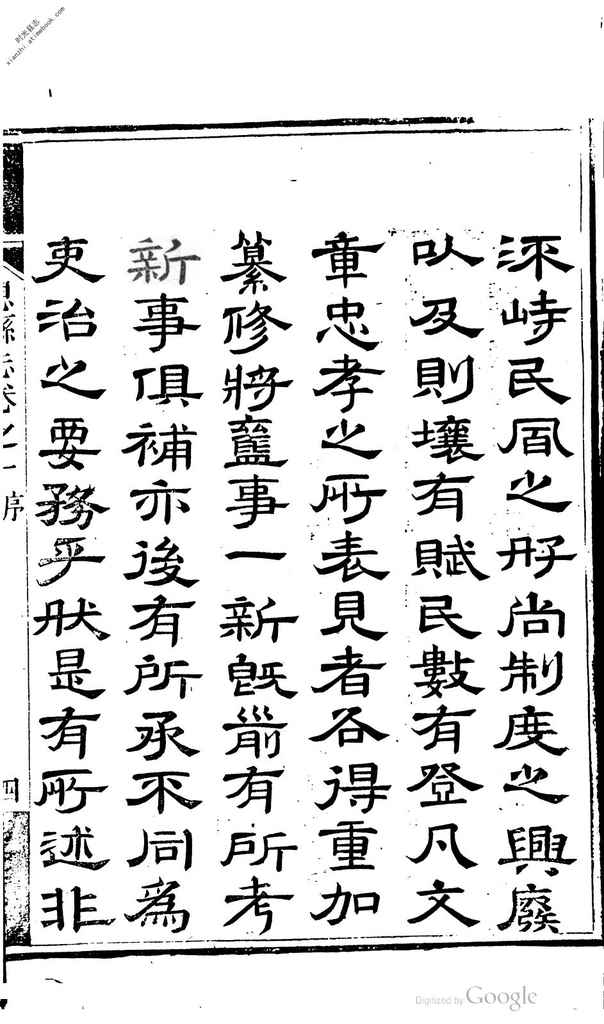 流峙民風之好尚制度之興廢
以及則壤有賦民數有登凡文
章忠孝之所表見者各得重加
纂修將事一新旣前有所考
新事俱補亦後有所承不同爲
吏治之要務乎肰是有所述非
縣志卷之一 序 四
时光县志
xianzhi.atimebook.com
Digitized by Google